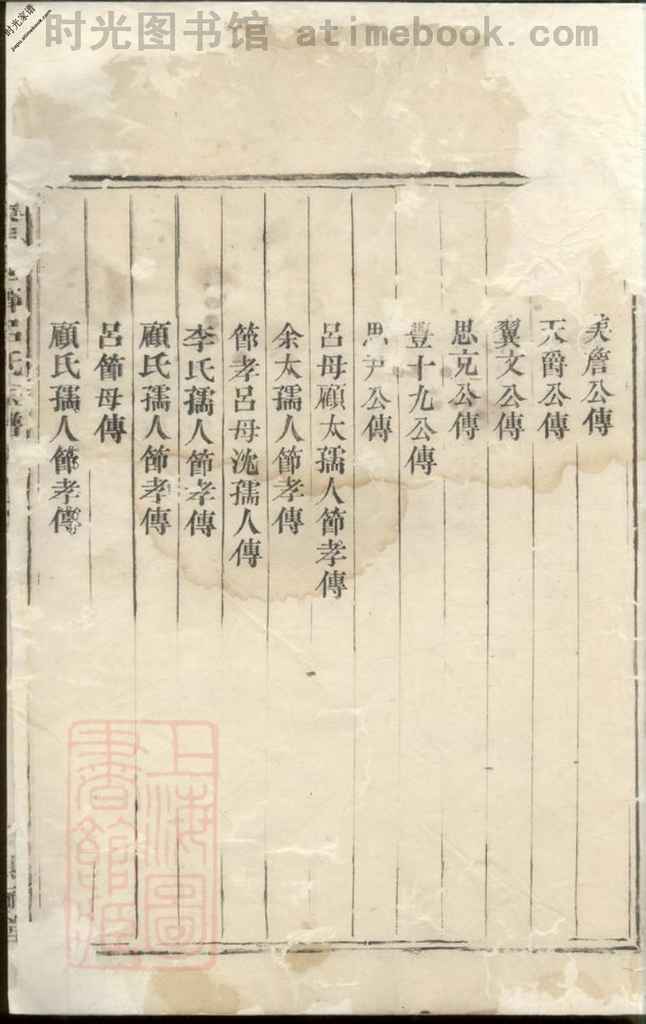 时光图书馆 atimebook.com
时光家谱
詹公傳
天爵公傳
翼文公傳
思克公傳
豐十九公傳
思尹公傳
呂母顧太孺人節孝傳
余太孺人節孝傳
節孝呂母沈孺人傳
李氏孺人節孝傳
顧氏孺人節孝傳
呂節母傳
顧氏孺人節孝傳
呂氏宗譜
上海圖
書館藏